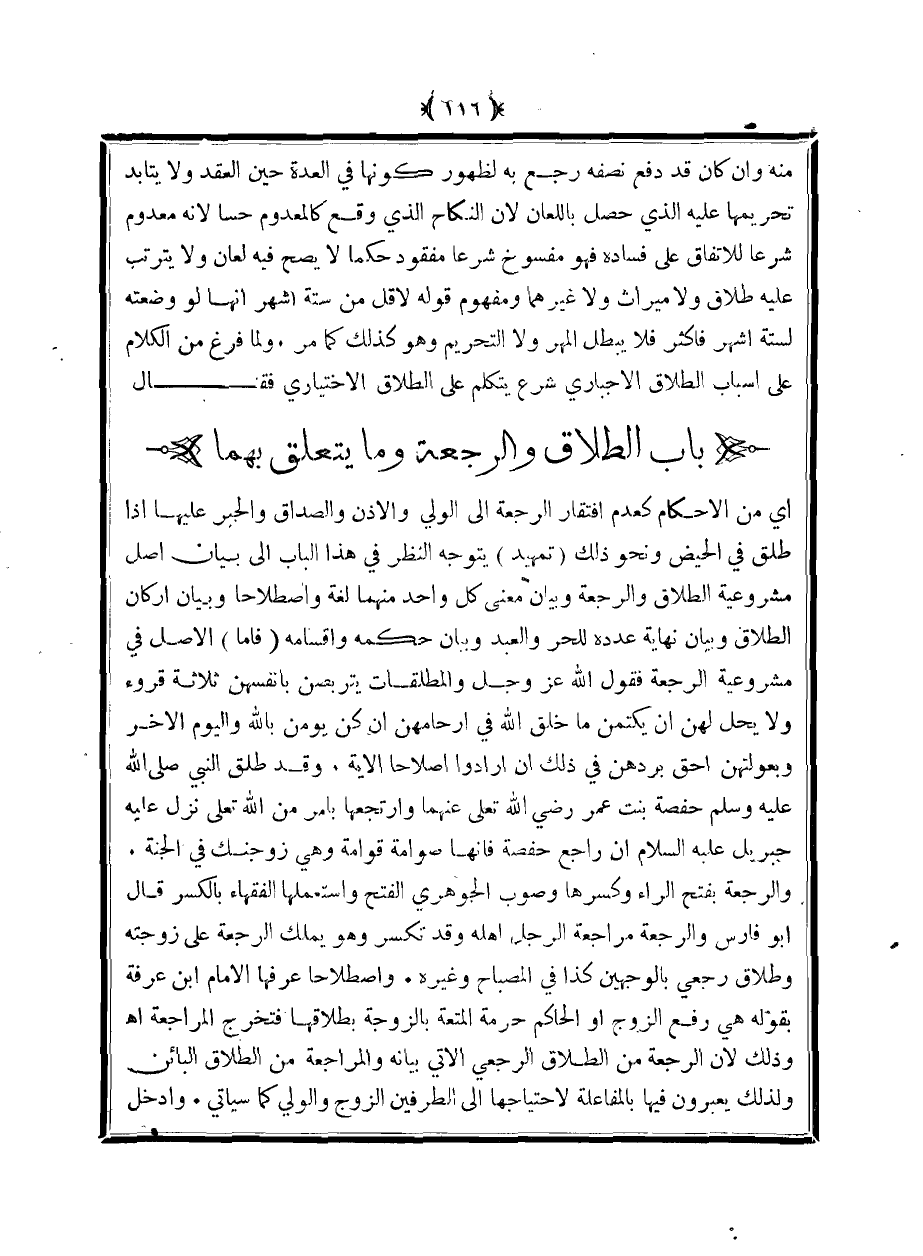 ﴿ ٦١٦ ﴾
منه وان كان قد دفع نصفه رجع به لظهور كونها في العدة حين العقد ولا يتابد
تحريمها عليه الذي حصل باللعان لان النكاح الذي وقع كالمعدوم حسا لانه معدوم
شرعا للاتفاق على فساده فهو مفسوخ شرعا مفقود حكما لا يصح فيه لعان ولا يترتب
عليه طلاق ولا ميراث ولا غيرهما ومفهوم قوله لاقل من ستة اشهر انها لو وضعته
لستة اشهر فاكثر فلا يبطل المهر ولا التحريم وهو كذلك كما مر ٠ ولما فرغ من الكلام
على اسباب الطلاق الاجباري شرع يتكلم على الطلاق الاختياري فقال
باب الطلاق والرجعة وما يتعلق بهما
اي من الاحكام كعدم افتقار الرجعة الى الولي والاذن والصداق والجبر عليها اذا
طلق في الحيض ونحو ذلك ( تمهيد ) يتوجه النظر في هذا الباب الى بيان اصل
مشروعية الطلاق والرجعة وبيان معنى كل واحد منهما لغة واصطلاحا وبيان اركان
الطلاق وبيان نهاية عدده للحر والعبد وبيان حكمه واقسامه ( فاما ) الاصل في
مشروعية الرجعة فقول الله عز وجل والمطلقات يتربصن بانفسهن ثلاثة قروء
ولا يحل لهن ان يكتمن ما خلق الله في ارحامهن ان كن يومن بالله واليوم الاخر
وبعولتهن احق بردهن في ذلك ان ارادوا اصلاحا الاية ٠ وقد طلق النبي صلى الله
عليه وسلم حفصة بنت عمر رضي الله تعلى عنهما وارتجعها بامر من الله تعلى نزل عليه
جبريل عليه السلام ان راجع حفصة فانها صوامة قوامة وهي زوجتك في الجنة ٠
والرجعة بفتح الراء وكسرها وصوب الجوهري الفتح واستعملها الفقهاء بالكسر قال
ابو فارس والرجعة مراجعة الرجل اهله وقد تكسر وهو يملك الرجعة على زوجته
وطلاق رجعي بالوجهين كذا في المصباح وغيره ٠ واصطلاحا عرفها الامام ابن عرفة
بقوله هي رفع الزوج او الحاكم حرمة المتعة بالزوجة بطلاقها فتخرج المراجعة اه
وذلك لان الرجعة من الطلاق الرجعي الاتي بيانه والمراجعة من الطلاق البائن
ولذلك يعبرون فيها بالمفاعلة لاحتياجها الى الطرفين الزوج والولي كما سياتي ٠ وادخل